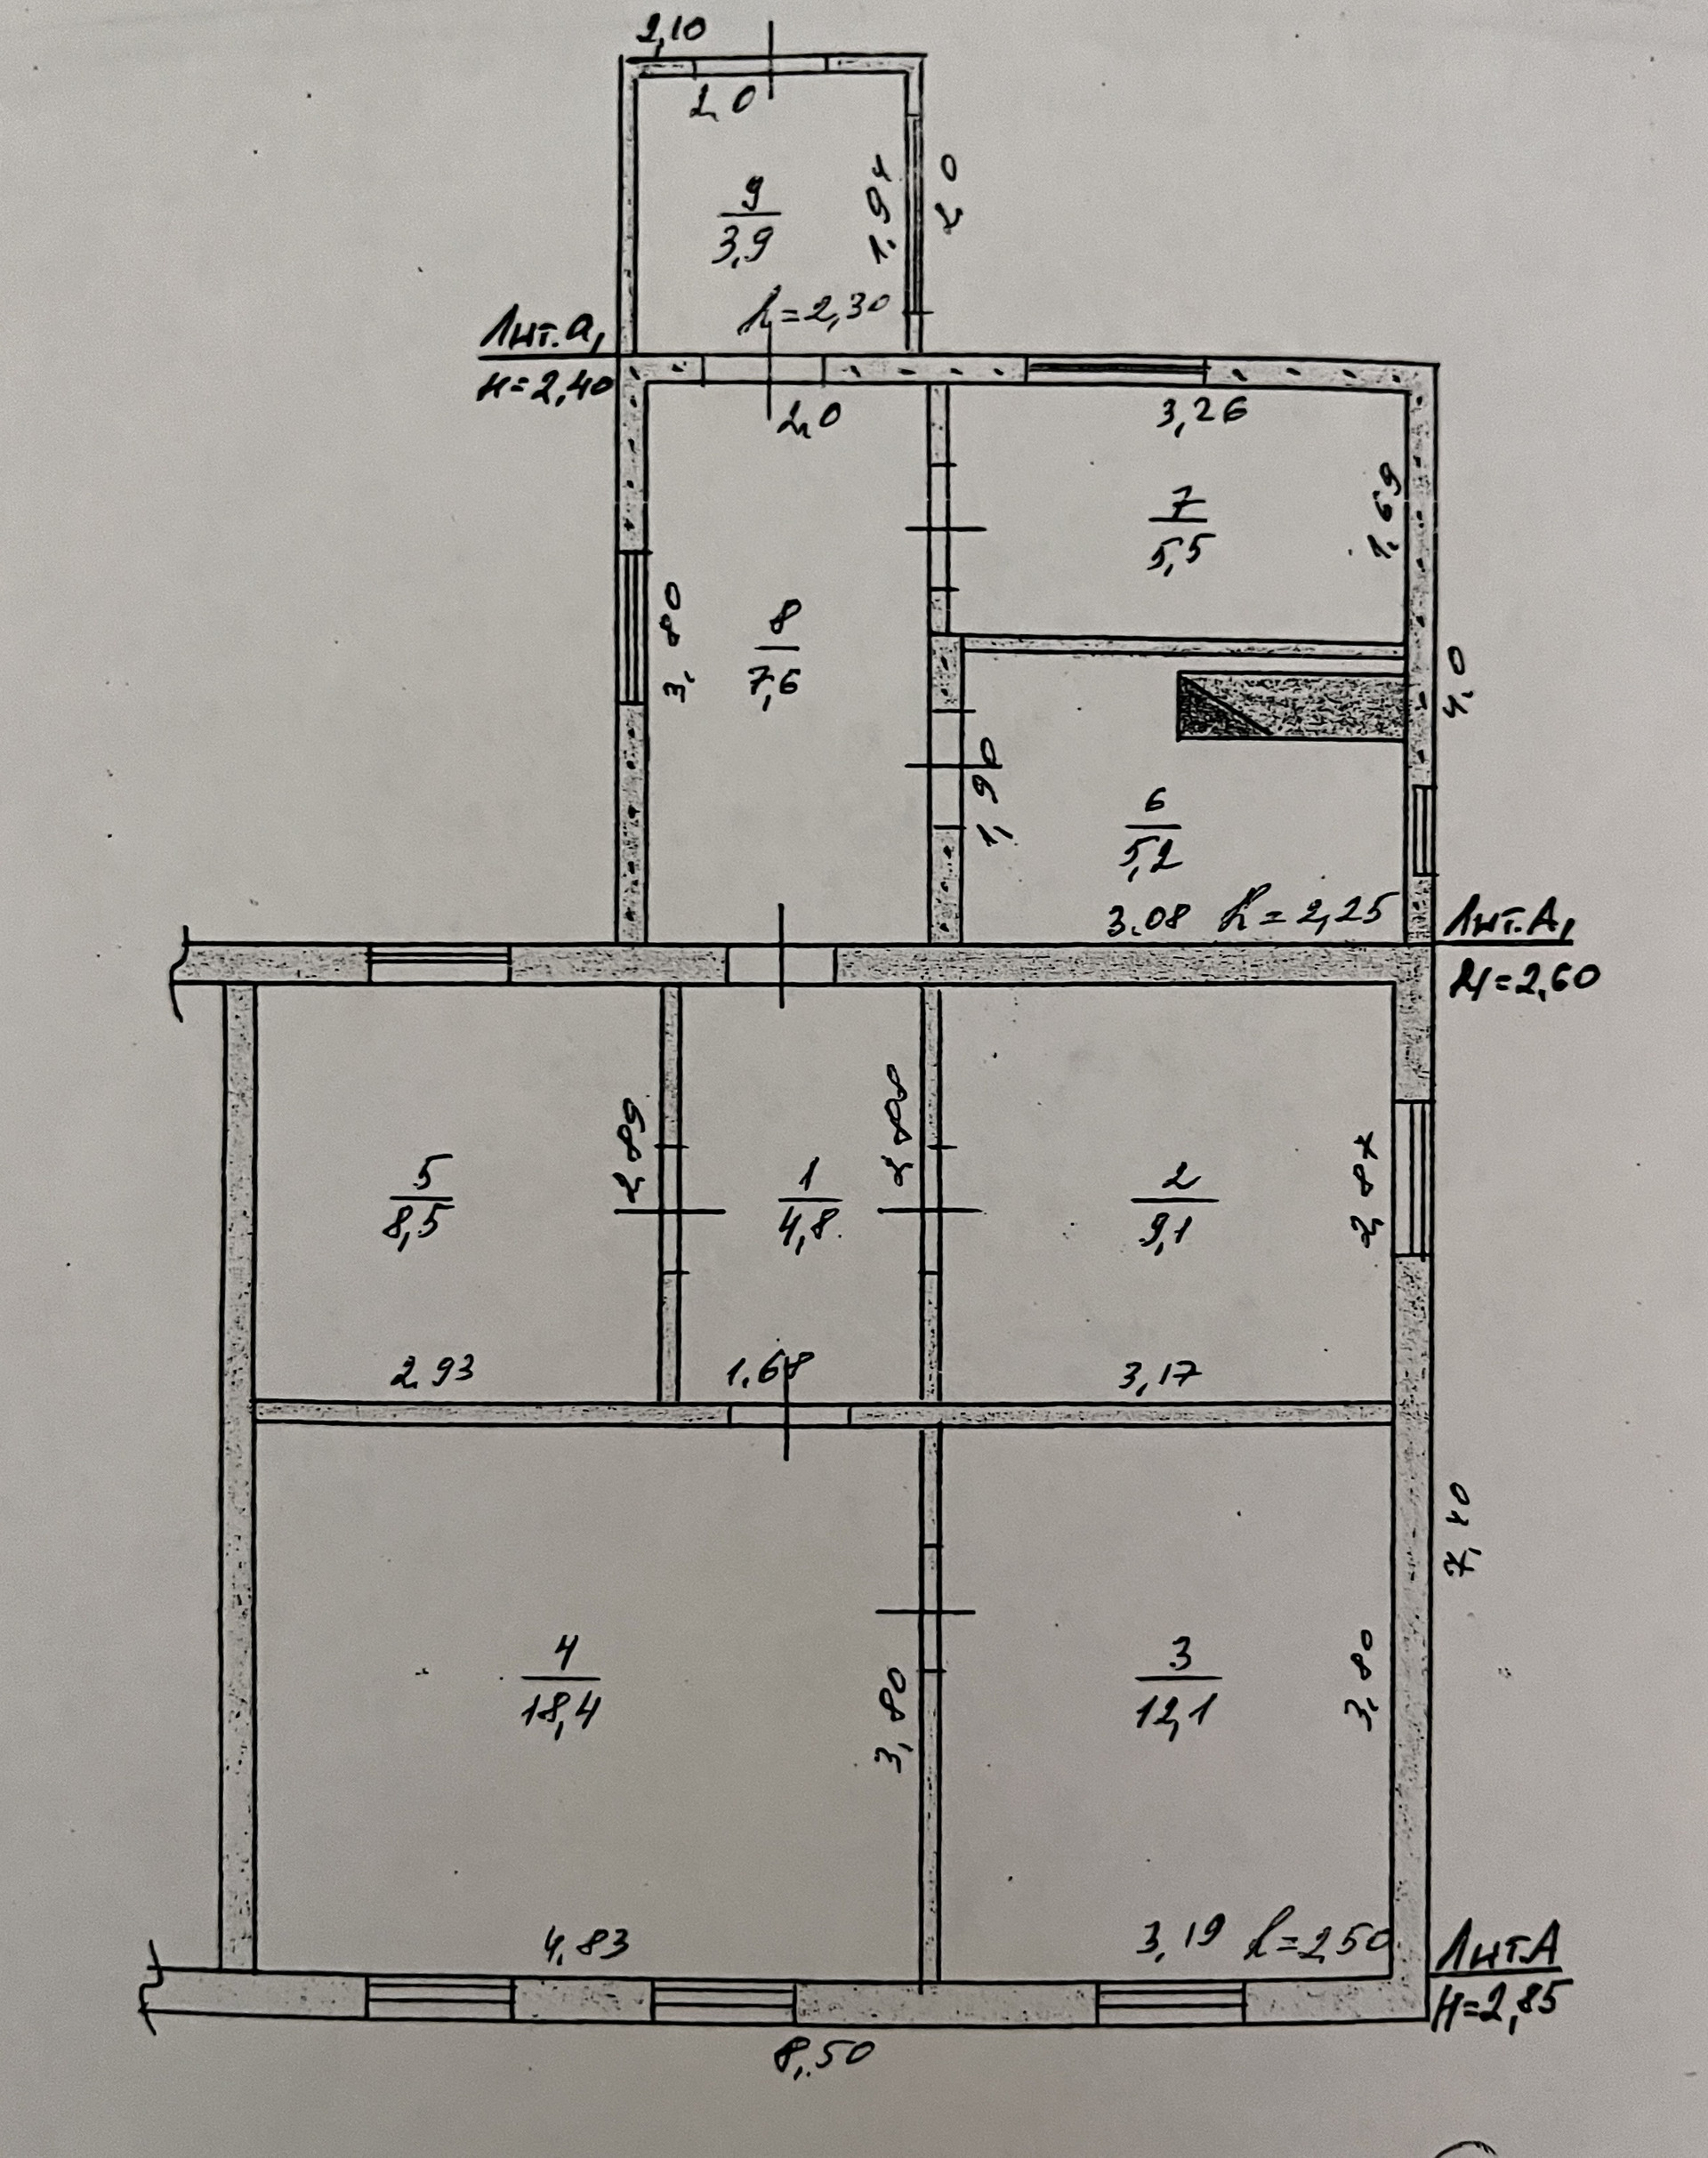 2,10
2,0
1,94
2,0
9
3,9
h=2,30
Лит.а,
H=2,40
2,0
3,26
1,69
7
5,5
3,80
8
7,6
4,0
1,90
6
5,2
3.08 h=2,25
Лит.А,
H=2,60
2,89
2,88
5
8,5
1
4,8
2
9,1
2,87
2,93
1,68
3,17
7,40
4
18,4
3,80
3
12,1
3,80
4,83
3,19 h=2,50
Лит.А
H=2,85
8,50